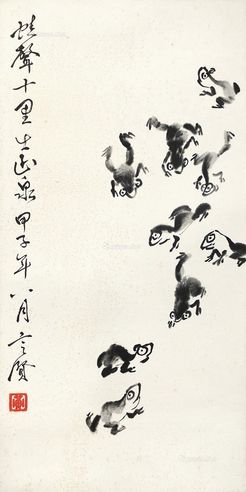 蛙聲十里出山泉 甲子年八月 之賢